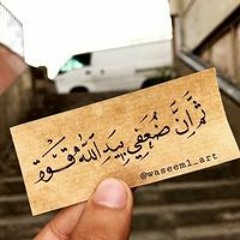 ثُمَّ إنَّ ضُعفي بيدِ اللهِ قُوّة
@waseem1_art